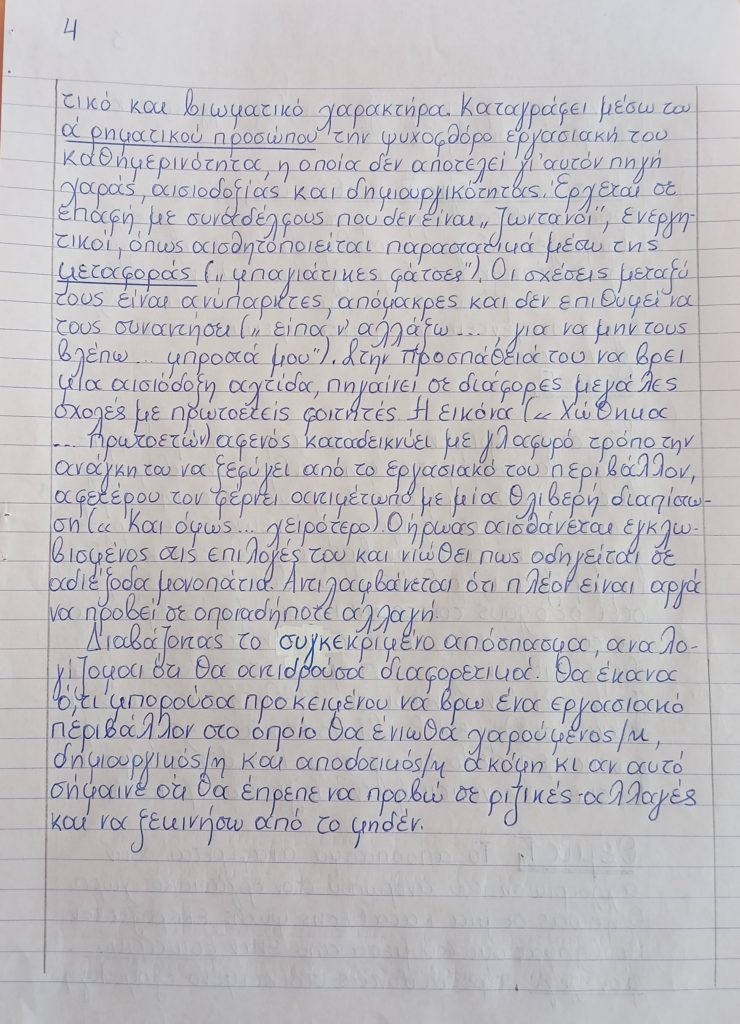 4
τικό και βιωματικό χαρακτήρα. Καταγράφει μέσω του
α' ρηματικού προσώπου την ψυχοφθόρο εργασιακή του
καθημερινότητα, η οποία δεν αποτελεί γι' αυτόν πηγή
χαράς, αισιοδοξίας και δημιουργικότητας. Έρχεται σε
επαφή με συναδέλφους που δεν είναι „ζωντανοί", ενεργη-
τικοί, όπως αισθητοποιείται παραστατικά μέσω της
μεταφοράς („μπαγιάτικες φάτσες"). Οι σχέσεις μεταξύ
τους είναι ανύπαρκτες, απόμακρες και δεν επιθυμεί να
τους συναντήσει („είπα ν' αλλάξω ... για να μην τους
βλέπω ... μπροστά μου"). Στην προσπάθειά του να βρει
μία αισιόδοξη αχτίδα, πηγαίνει σε διάφορες μεγάλες
σχολές με πρωτοετείς φοιτητές. Η εικόνα (« Χώθηκα
... πρωτοετών) αφενός καταδεικνύει με γλαφυρό τρόπο την
ανάγκη του να ξεφύγει από το εργασιακό του περιβάλλον,
αφετέρου τον φέρνει αντιμέτωπο με μία θλιβερή διαπίστω-
ση (« Και όμως ... χειρότερο). Ο ήρωας αισθάνεται εγκλω-
βισμένος στις επιλογές του και νιώθει πως οδηγείται σε
αδιέξοδα μονοπάτια. Αντιλαμβάνεται ότι πλέον είναι αργά
να προβεί σε οποιαδήποτε αλλαγή.
Διαβάζοντας το συγκεκριμένο απόσπασμα, αναλο-
γίζομαι ότι θα αντιδρούσα διαφορετικά. Θα έκανα
ό,τι μπορούσα προκειμένου να βρω ένα εργασιακό
περιβάλλον στο οποίο θα ένιωθα χαρούμενος/η,
δημιουργικός/η και αποδοτικός/η ακόμη κι αν αυτό
σήμαινε ότι θα έπρεπε να προβώ σε ριζικές αλλαγές
και να ξεκινήσω από το μηδέν.